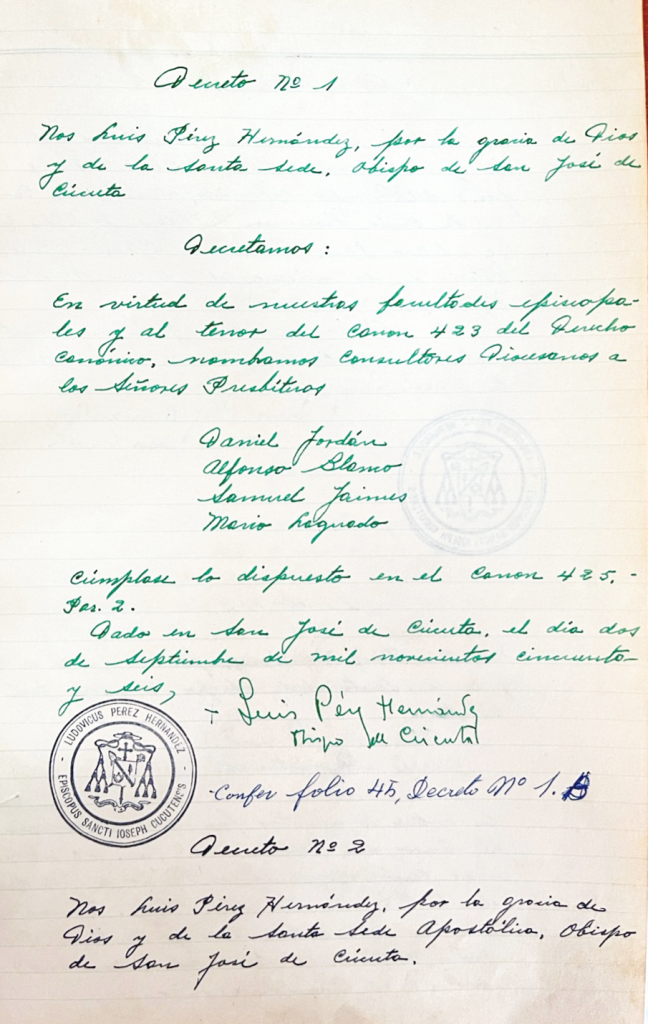 Decreto Nº 1
Nos Luis Pérez Hernández, por la gracia de Dios
y de la Santa Sede, Obispo de San José de
Cúcuta
Decretamos:
En virtud de nuestras facultades episcopa-
les y al tenor del Canon 423 del Derecho
Canónico, nombramos Consultores Diocesanos a
los Señores Presbíteros
Daniel Jordán
Alfonso Blanco
Samuel Jaimes
Mario Laguado
Cúmplase lo dispuesto en el Canon 425. -
Par. 2.
Dado en San José de Cúcuta, el día dos
de Septiembre de mil novecientos cincuenta
y seis,
+ Luis Pérez Hernández
Obispo de Cúcuta
LUDOVICUS PEREZ HERNANDEZ
EPISCOPUS SANCTI IOSEPH CUCUTENCS
-Confer folio 45, Decreto Nº 1.
Decreto Nº 2
Nos Luis Pérez Hernández, por la gracia de
Dios y de la Santa Sede Apostólica, Obispo
de San José de Cúcuta.